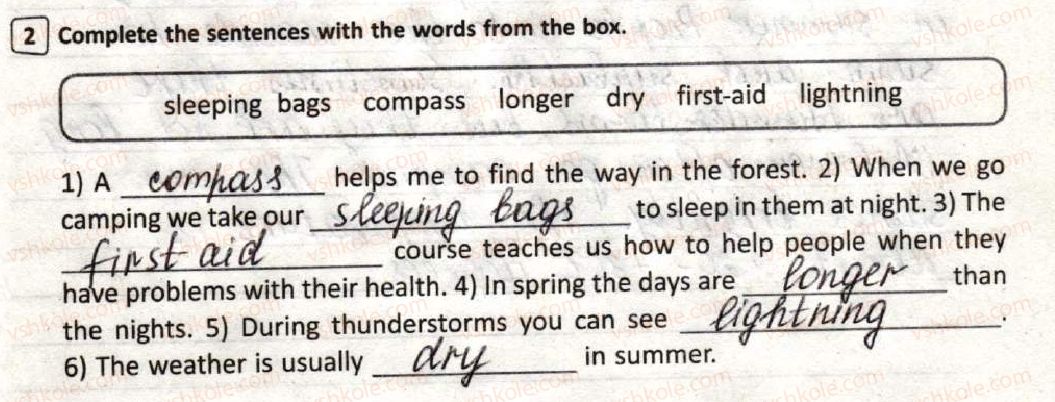 2 Complete the sentences with the words from the box.
sleeping bags compass longer dry first-aid lightning
1) A compass helps me to find the way in the forest. 2) When we go
camping we take our sleeping bags to sleep in them at night. 3) The
first aid course teaches us how to help people when they
have problems with their health. 4) In spring the days are longer than
the nights. 5) During thunderstorms you can see lightning.
6) The weather is usually dry in summer.